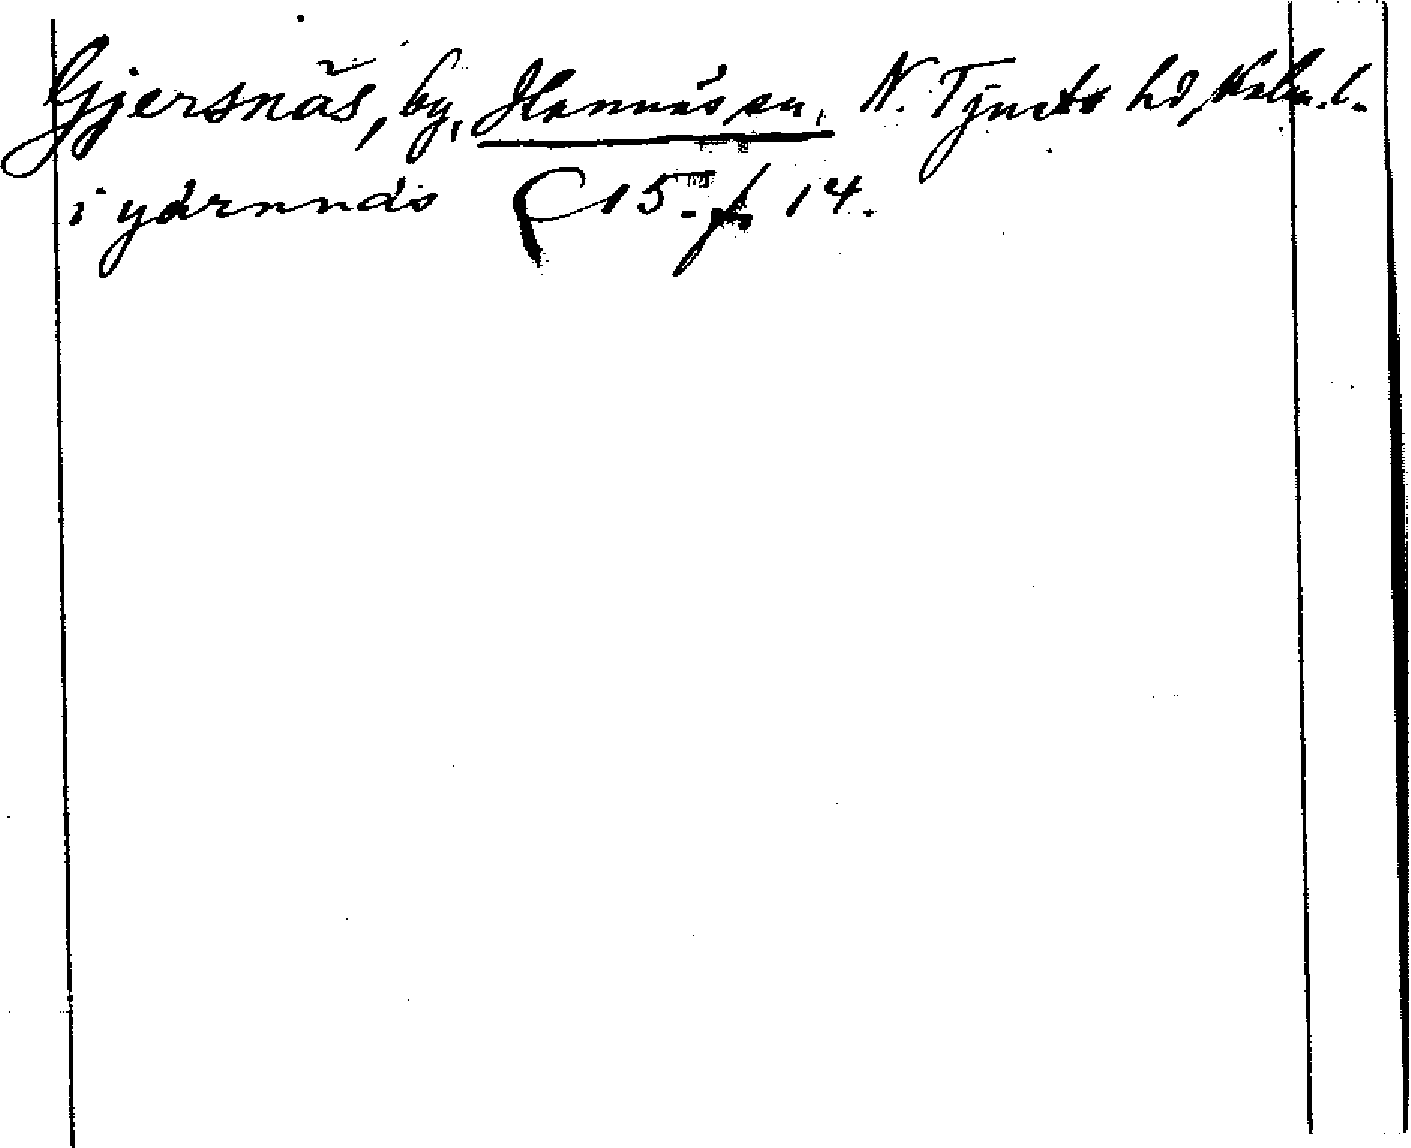 Gjersnäs, by, Hannäs sn, N. Tjusts hd, Kalm. l.
i yärnnäs C 15. f. 14.